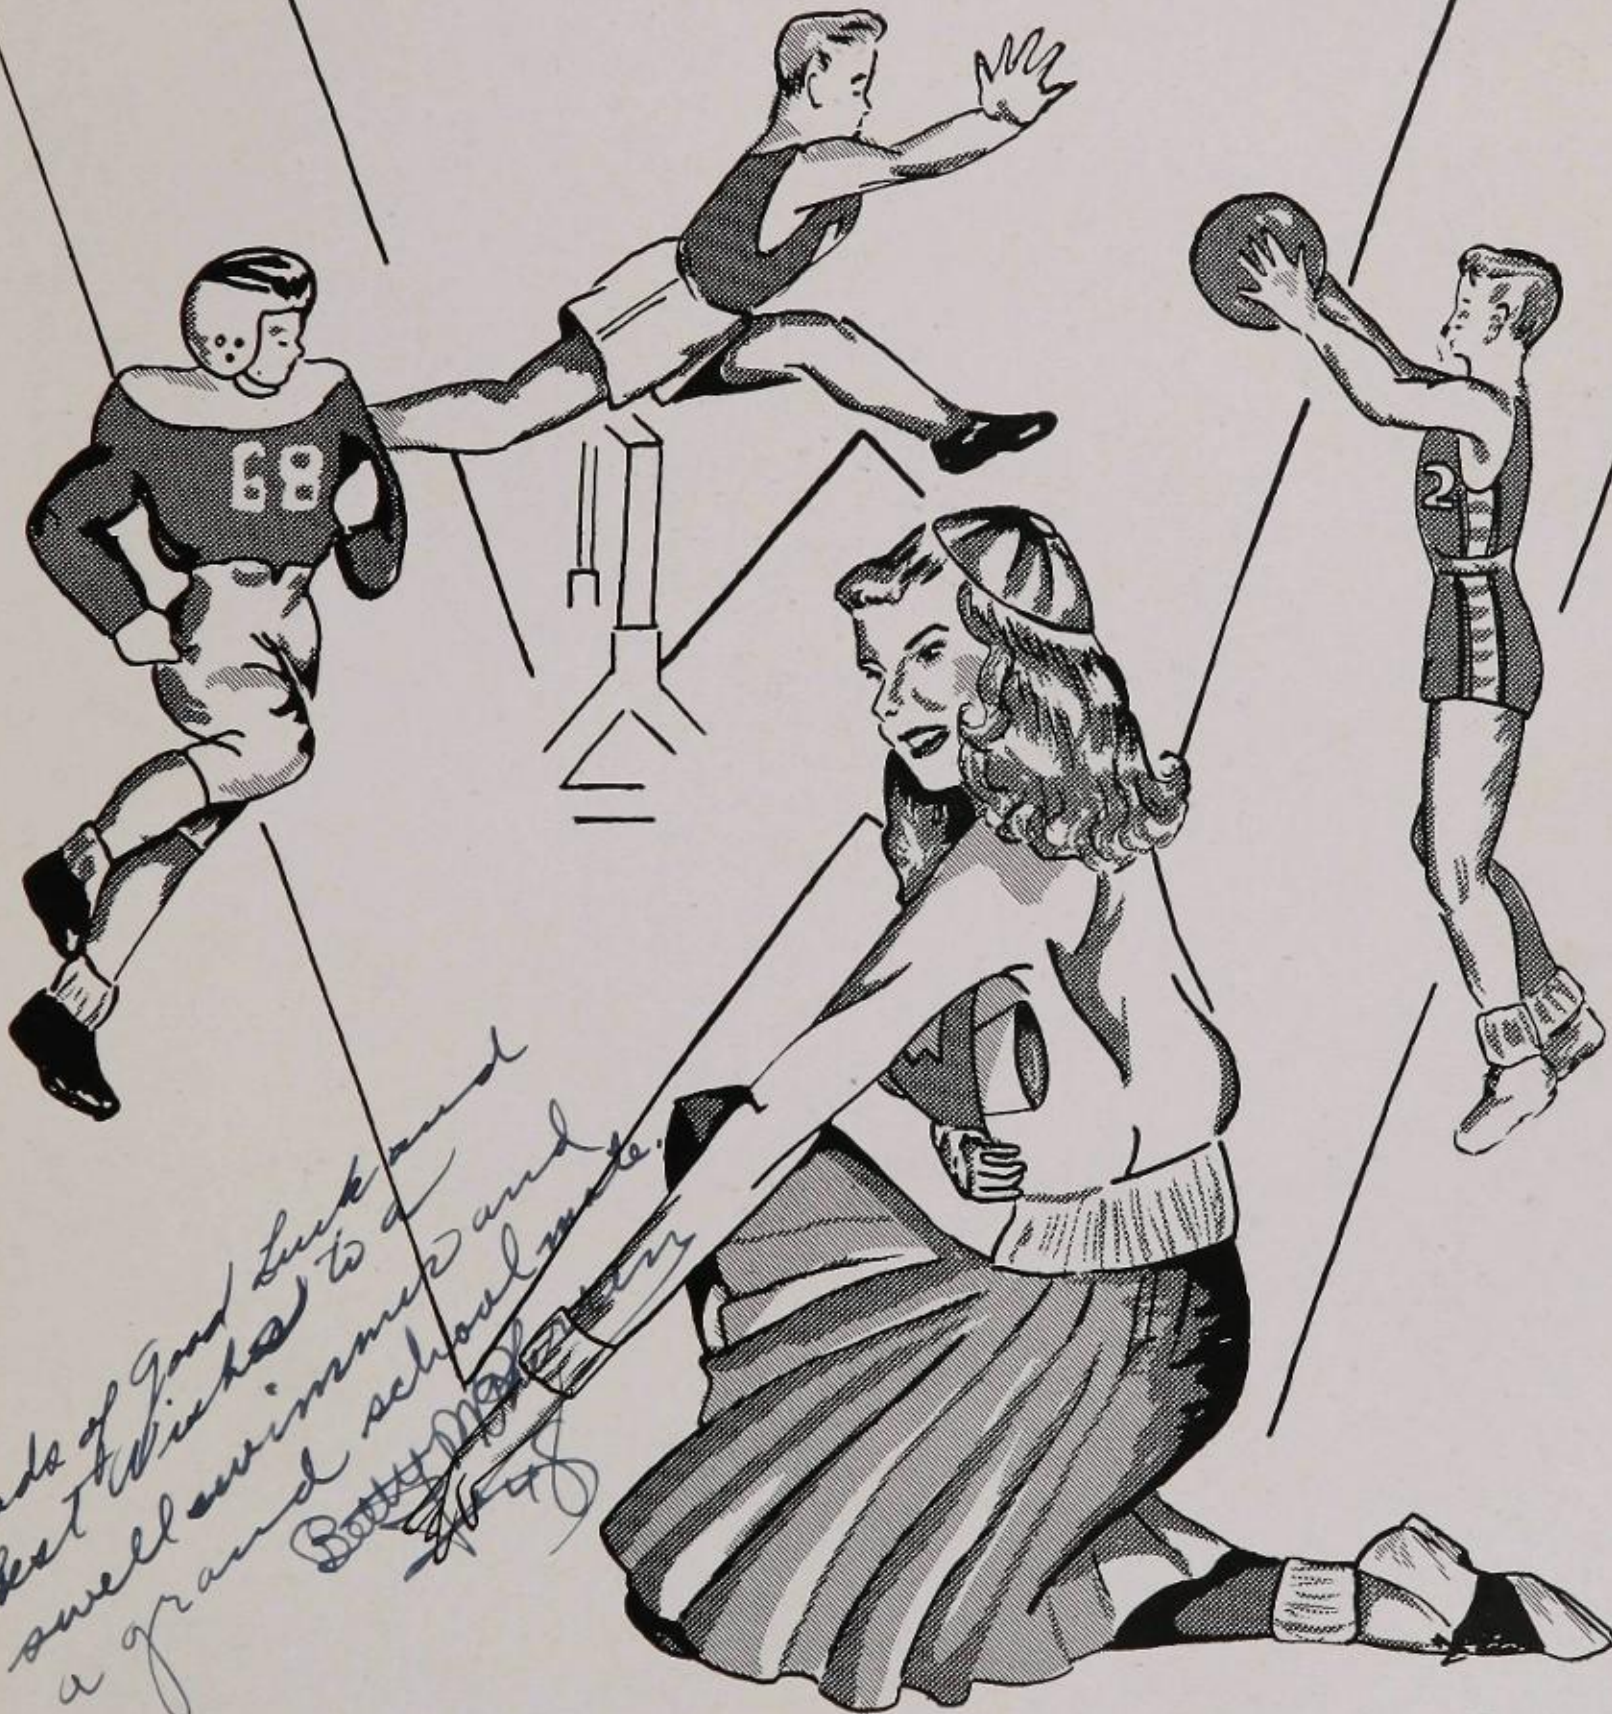 68
2
ads of Good Luck and
Best Wishes to a
swell swimmer and
a grand school mate.
Betty